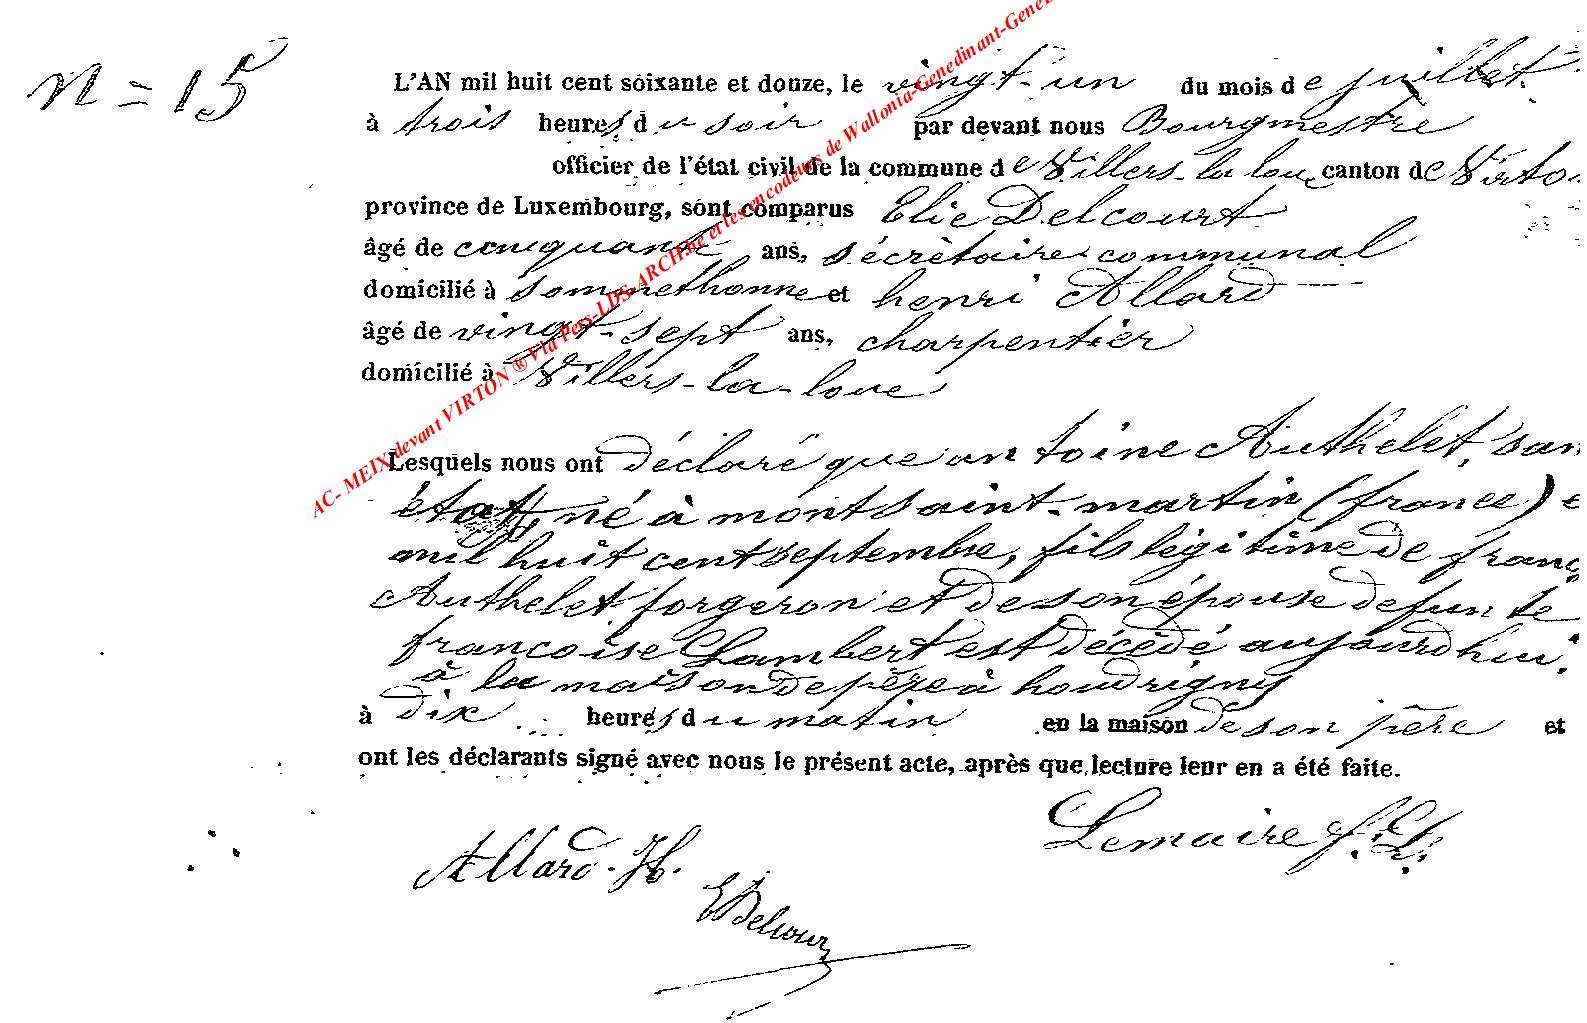 n = 15
L'AN mil huit cent soixante et douze, le vingt-un du mois de juillet
à trois heures du soir par devant nous Bourgmestre
officier de l'état civil de la commune de Villers-la loue canton de Virto
province de Luxembourg, sont comparus Elie Delcourt
âgé de cinquante ans, sécrètaire communal
domicilié à Sommethonne et henri Allard
âgé de vingt-sept ans, charpentier
domicilié à Villers-la-loue
Lesquels nous ont déclaré que antoine Authelet, san
état, né à mont saint-martin (france) e
mil huit cent septembre, fils légitime de franç
Authelet forgeron et de son épouse defunte
francoise Lambert est décédé aujourd hui
à la maison de père à houdrigny
à dix heures du matin en la maison de son père et
ont les déclarants signé avec nous le présent acte, après que lecture leur en a été faite.
Lemaire f. L.
Allard. H.
E Delcour
AC- MEIX devant VIRTON ® Via Pers-LDS-ARCH.be et les encodeurs de Wallonia-Genedinant-GeneL